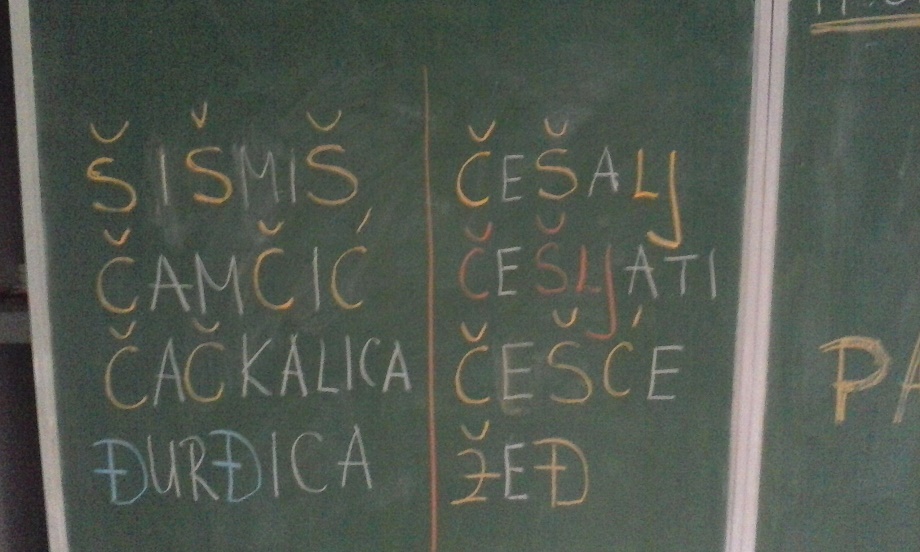 ŠIŠMIŠ
ČAMČIĆ
ČAČKALICA
ĐURĐICA
ČEŠALJ
ČEŠLJATI
ČEŠĆE
ŽEĐ